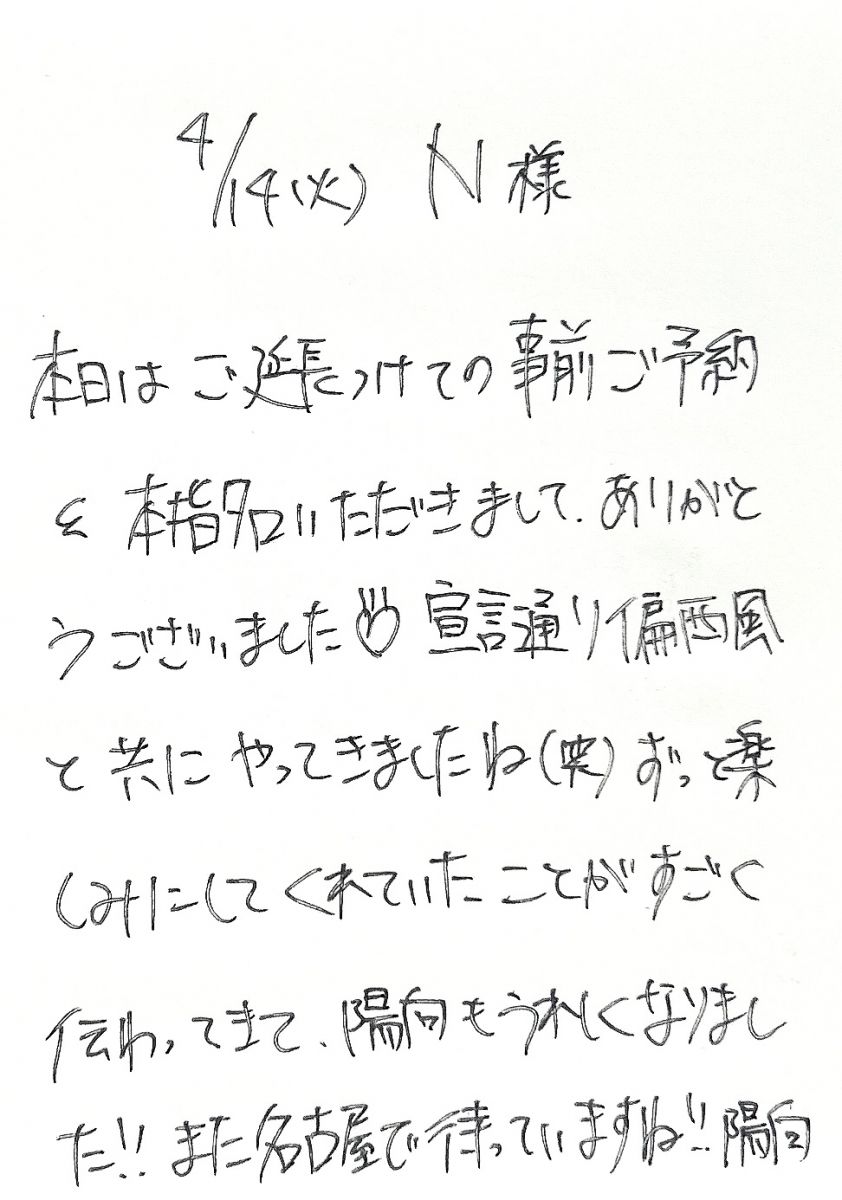 4/14(火) N様
本日はご延長つけての事前ご予約
と本指名いただきまして、ありがと
うございました 宣言通り偏西風
と共にやってきましたね(笑)ずっと楽
しみにしてくれていたことがすごく
伝わってきて、陽向もうれしくなりまし
た!! また名古屋で待っていますね!! 陽向